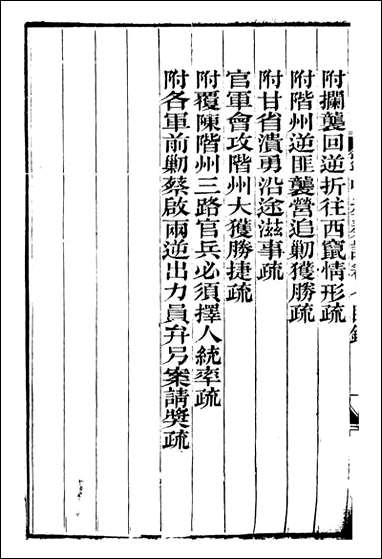 附攔襲回逆折往西竄情形疏
附階州逆匪襲營追剿獲勝疏
附甘省潰勇沿途滋事疏
官軍會攻階州大獲勝捷疏
附覆陳階州三路官兵必須擇人統率疏
附各軍前剿蔡啟兩逆出力員弁另案請獎疏